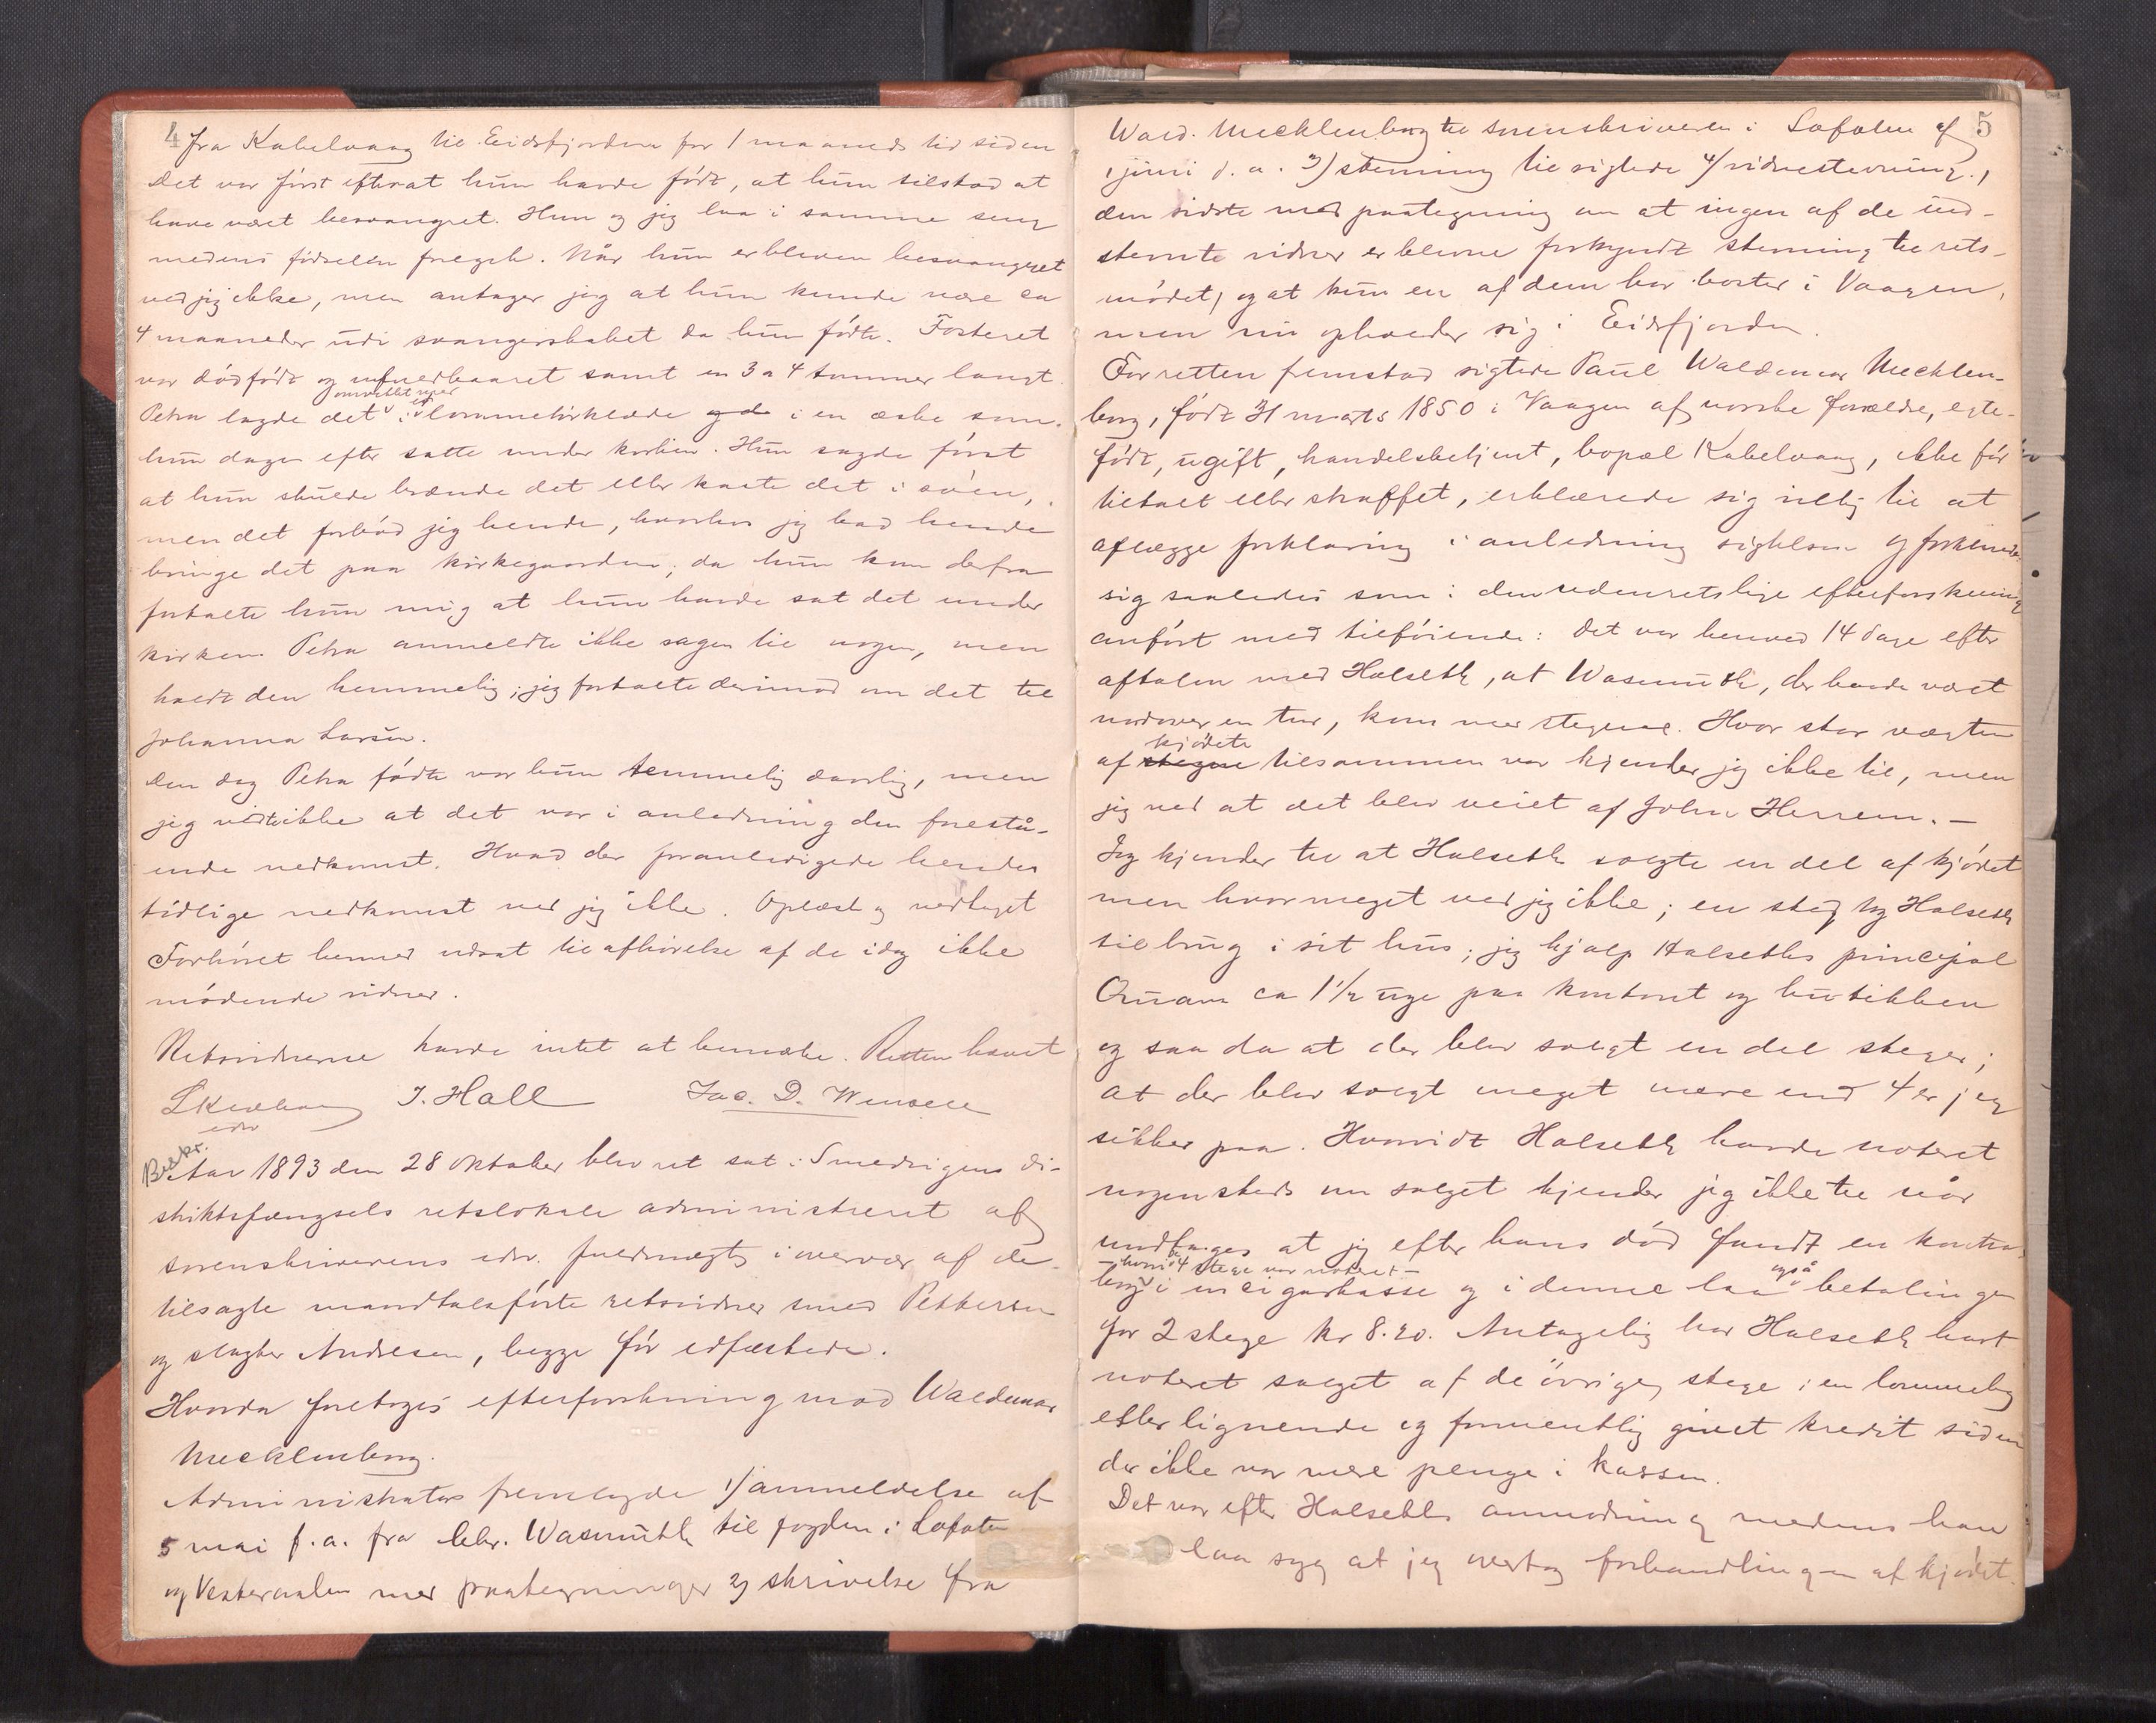 4
fra Kabelvaag til Eidsfjorden for 1 maaneds tid siden
Det var først efterat hun havde født, at hun tilstod at
have været besvangret. Hun og jeg laa i samme seng
medens fødselen foregik. Når hun er bleven besvangret
ved jeg ikke, men antager jeg at hun kunde være ca
4 maaneder udi svangerskabet da hun fødte. Fosteret
var dødfødt og ufuldbaaret samt en 3 a 4 tommer langt.
omviklet med et
Petra lagde det i lommetørklæde og de i en æske som
hun dagen efter satte under kirken. Hun sagde først
at hun skulde brænde det eller kaste det i søen,
men det forbød jeg hende, hvorhos jeg bad hende
bringe det paa kirkegaarden; da hun kom derfra
fortalte hun mig at hun havde sat det under
kirken. Petra anmeldte ikke sagen til nogen, men
holdt den hemmelig; jeg fortalte derimod om det til
Johanna Larsen.
Den dag Petra fødte var hun temmelig daarlig, men
jeg vidste ikke at det var i anledning den forestå-
ende nedkomst. Hvad der foranledigede hendes
tidlige nedkomst ved jeg ikke. Oplæst og vedtaget
Forhøret hermed udsat til afhørelse af de idag ikke
mødende vidner.
Retsvidnerne havde intet at bemærke. Retten hævet
edv J. Hall Jac. D. Wensell
Beskr.
Aar 1893 den 28 oktober blev ret sat i Smedvigens di-
striktsfængsels retslokale administreret af
sorenskriverens edv. fuldmægtig i overvær af de
tilsagte mandtalsførte retsvidner smed Pettersen
og slagter Andresen, begge før edfæstede.
Hvorda foretoges efterforskning mod Waldemar
Mecklenborg.
Administrator fremlagde 1) anmeldelse af
5 mai f.a. fra lehr. Wasmuth til fogden i Lofoten
og Vesteraalen med paategninger 2) skrivelse fra
5
Wald. Mecklenborg til sorenskriveren i Lofoten af
juni d.a. 3) stevning til sigtede 4) vidnestevning,
den sidste med paategning om at ingen af de ind-
stevnte vidner er blevne forkyndt stevning til rets-
mødet, og at kun en af dem bor borte i Vaagen,
men nu opholder sig i Eidsfjorden.
For retten fremstod sigtede Paul Waldemar Mecklen-
borg, født 31 marts 1850 i Vaagen af norske forældre, egte-
født, ugift, handelsbetjent, bopæl Kabelvaag, ikke før
tiltalt eller straffet, erklærede sig villig til at
aflægge forklaring i anledning sigtelsen og forklarede
sig saaledes som i den udenretslige efterforskning
anført med tilføiende: Det var henved 14 dage efter
aftalen med Halseth, at Wasmuth, der havde været
nordover en tur, kom med stegene. Hvor stor vægten
kjødete
af stegene tilsammen var kjender jeg ikke til, men
jeg ved at det blev veiet af John Herrem. –
Jeg kjender til at Halseth solgte en del af kjødet
men hvor meget ved jeg ikke; en steg tog Halseth
til brug i sit hus; jeg hjalp Halseths principal
ca 1 1/2 uge paa kontoret og butikken
og saa da at der blev solgt en del steger;
at der blev solgt meget mere end 4 er jeg
sikker paa. Hvorvidt Halseth havde noteret
nogensteds om salget kjender jeg ikke til når
undtages at jeg efter hans død fandt en kontra-
hvori 4 stege var noteret – også
bog i en cigarkasse og i denne laa betalingen
for 2 stege kr 8.20. Antagelig har Halseth havt
noteret salget af de øvrige stege i en lommebog
eller lignende og formentlig givet kredit siden
der ikke var mere penge i kassen.
Det var efter Halseths anmodning medens han
laa syg at jeg overtog forhandlingen af kjødet.